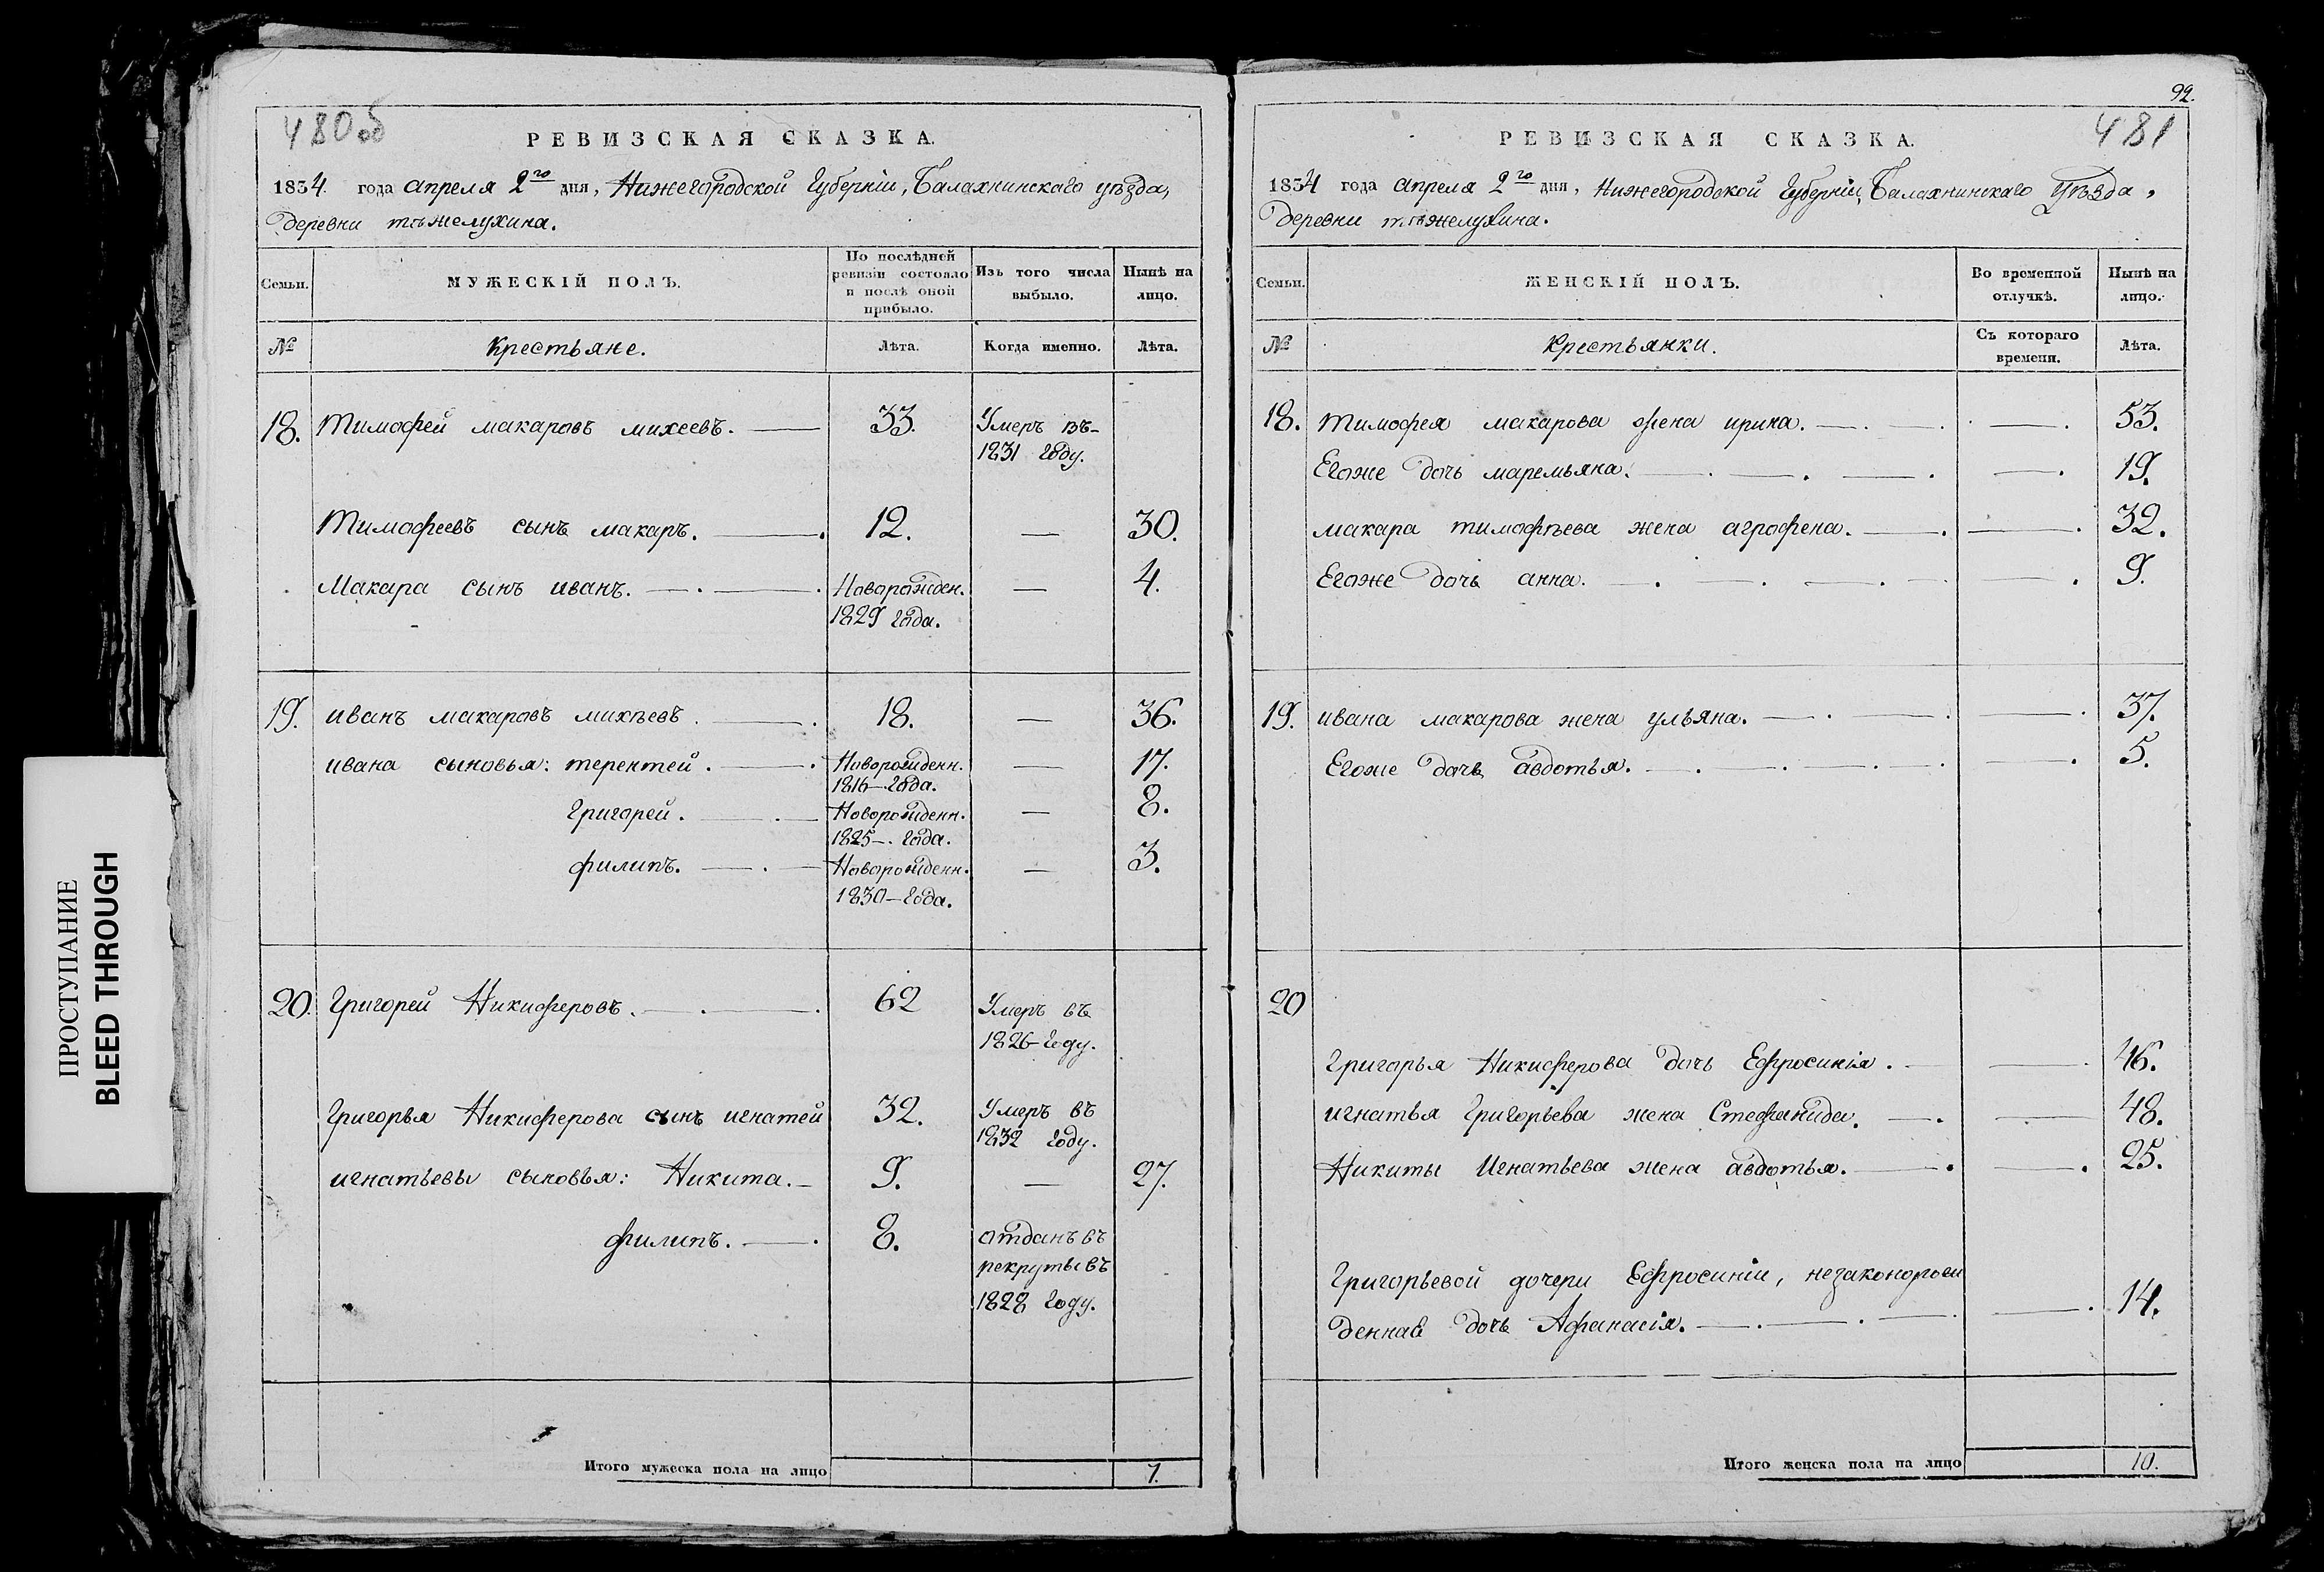 480об
РЕВИЗСКАЯ СКАЗКА.
1834. года апреля 2го дня, Нижегородской Губерніи, Балахнинскаго уѣзда,
деревни тѣжелухина.
Семьи.
МУЖЕСКІЙ ПОЛЪ.
По послѣдней ревизіи состояло и послѣ оной прибыло.
Изъ того числа выбыло.
Нынѣ на лицо.
№
Крестьяне.
Лѣта.
Когда именно.
Лѣта.
18. Тимофей макаровъ михеевъ. 33. Умеръ въ
1831 году.
Тимофеевъ сынъ макаръ. 12. — 30.
Макара сынъ иванъ. Новорожден. — 4.
1829 года.
19. иванъ макаровъ михѣевъ. 18. — 36.
ивана сыновья: терентей. Новорожденн. — 17.
1816 — года.
Григорей. Новорожденн. — 8.
1825 — года.
филипъ. Новорожденн. — 3.
1830 — года.
20. Григорей Никиферовъ. 62 Умеръ въ
1826 году.
Григорья Никиферова сынъ игнатей 32. Умеръ въ
1832 году.
игнатьевы сыновья: Никита. 9. — 27.
филипъ. 8. отданъ въ
рекруты въ
1828 году.
Итого мужеска пола на лицо 7.
92.
481
РЕВИЗСКАЯ СКАЗКА.
1834 года апреля 2го дня, Нижегородской Губерніи, Балахнинскаго Уѣзда,
деревни тѣжелухина.
Семьи.
ЖЕНСКІЙ ПОЛЪ.
Во временной отлучкѣ.
Нынѣ на лицо.
№
Крестьянки.
Съ котораго времени.
Лѣта.
18. Тимофея макарова жена ирина. — 53.
Егоже дочь маремьяна. — 19.
макара тимофѣева жена агрофена. — 32.
Егоже дочь анна. — 9.
19. ивана макарова жена ульяна. — 37.
Егоже дочь авдотья. — 5.
20
Григорья Никиферова дочь Ефросинія. — 46.
игнатья Григорьева жена Стефанида. — 48.
Никиты Игнатьева жена авдотья. — 25.
Григорьевой дочери Ефросиніи, незаконорож
денная дочь Афанасія. — 14.
Итого женска пола на лицо 10.
ПРОСТУПАНИЕ
BLEED THROUGH